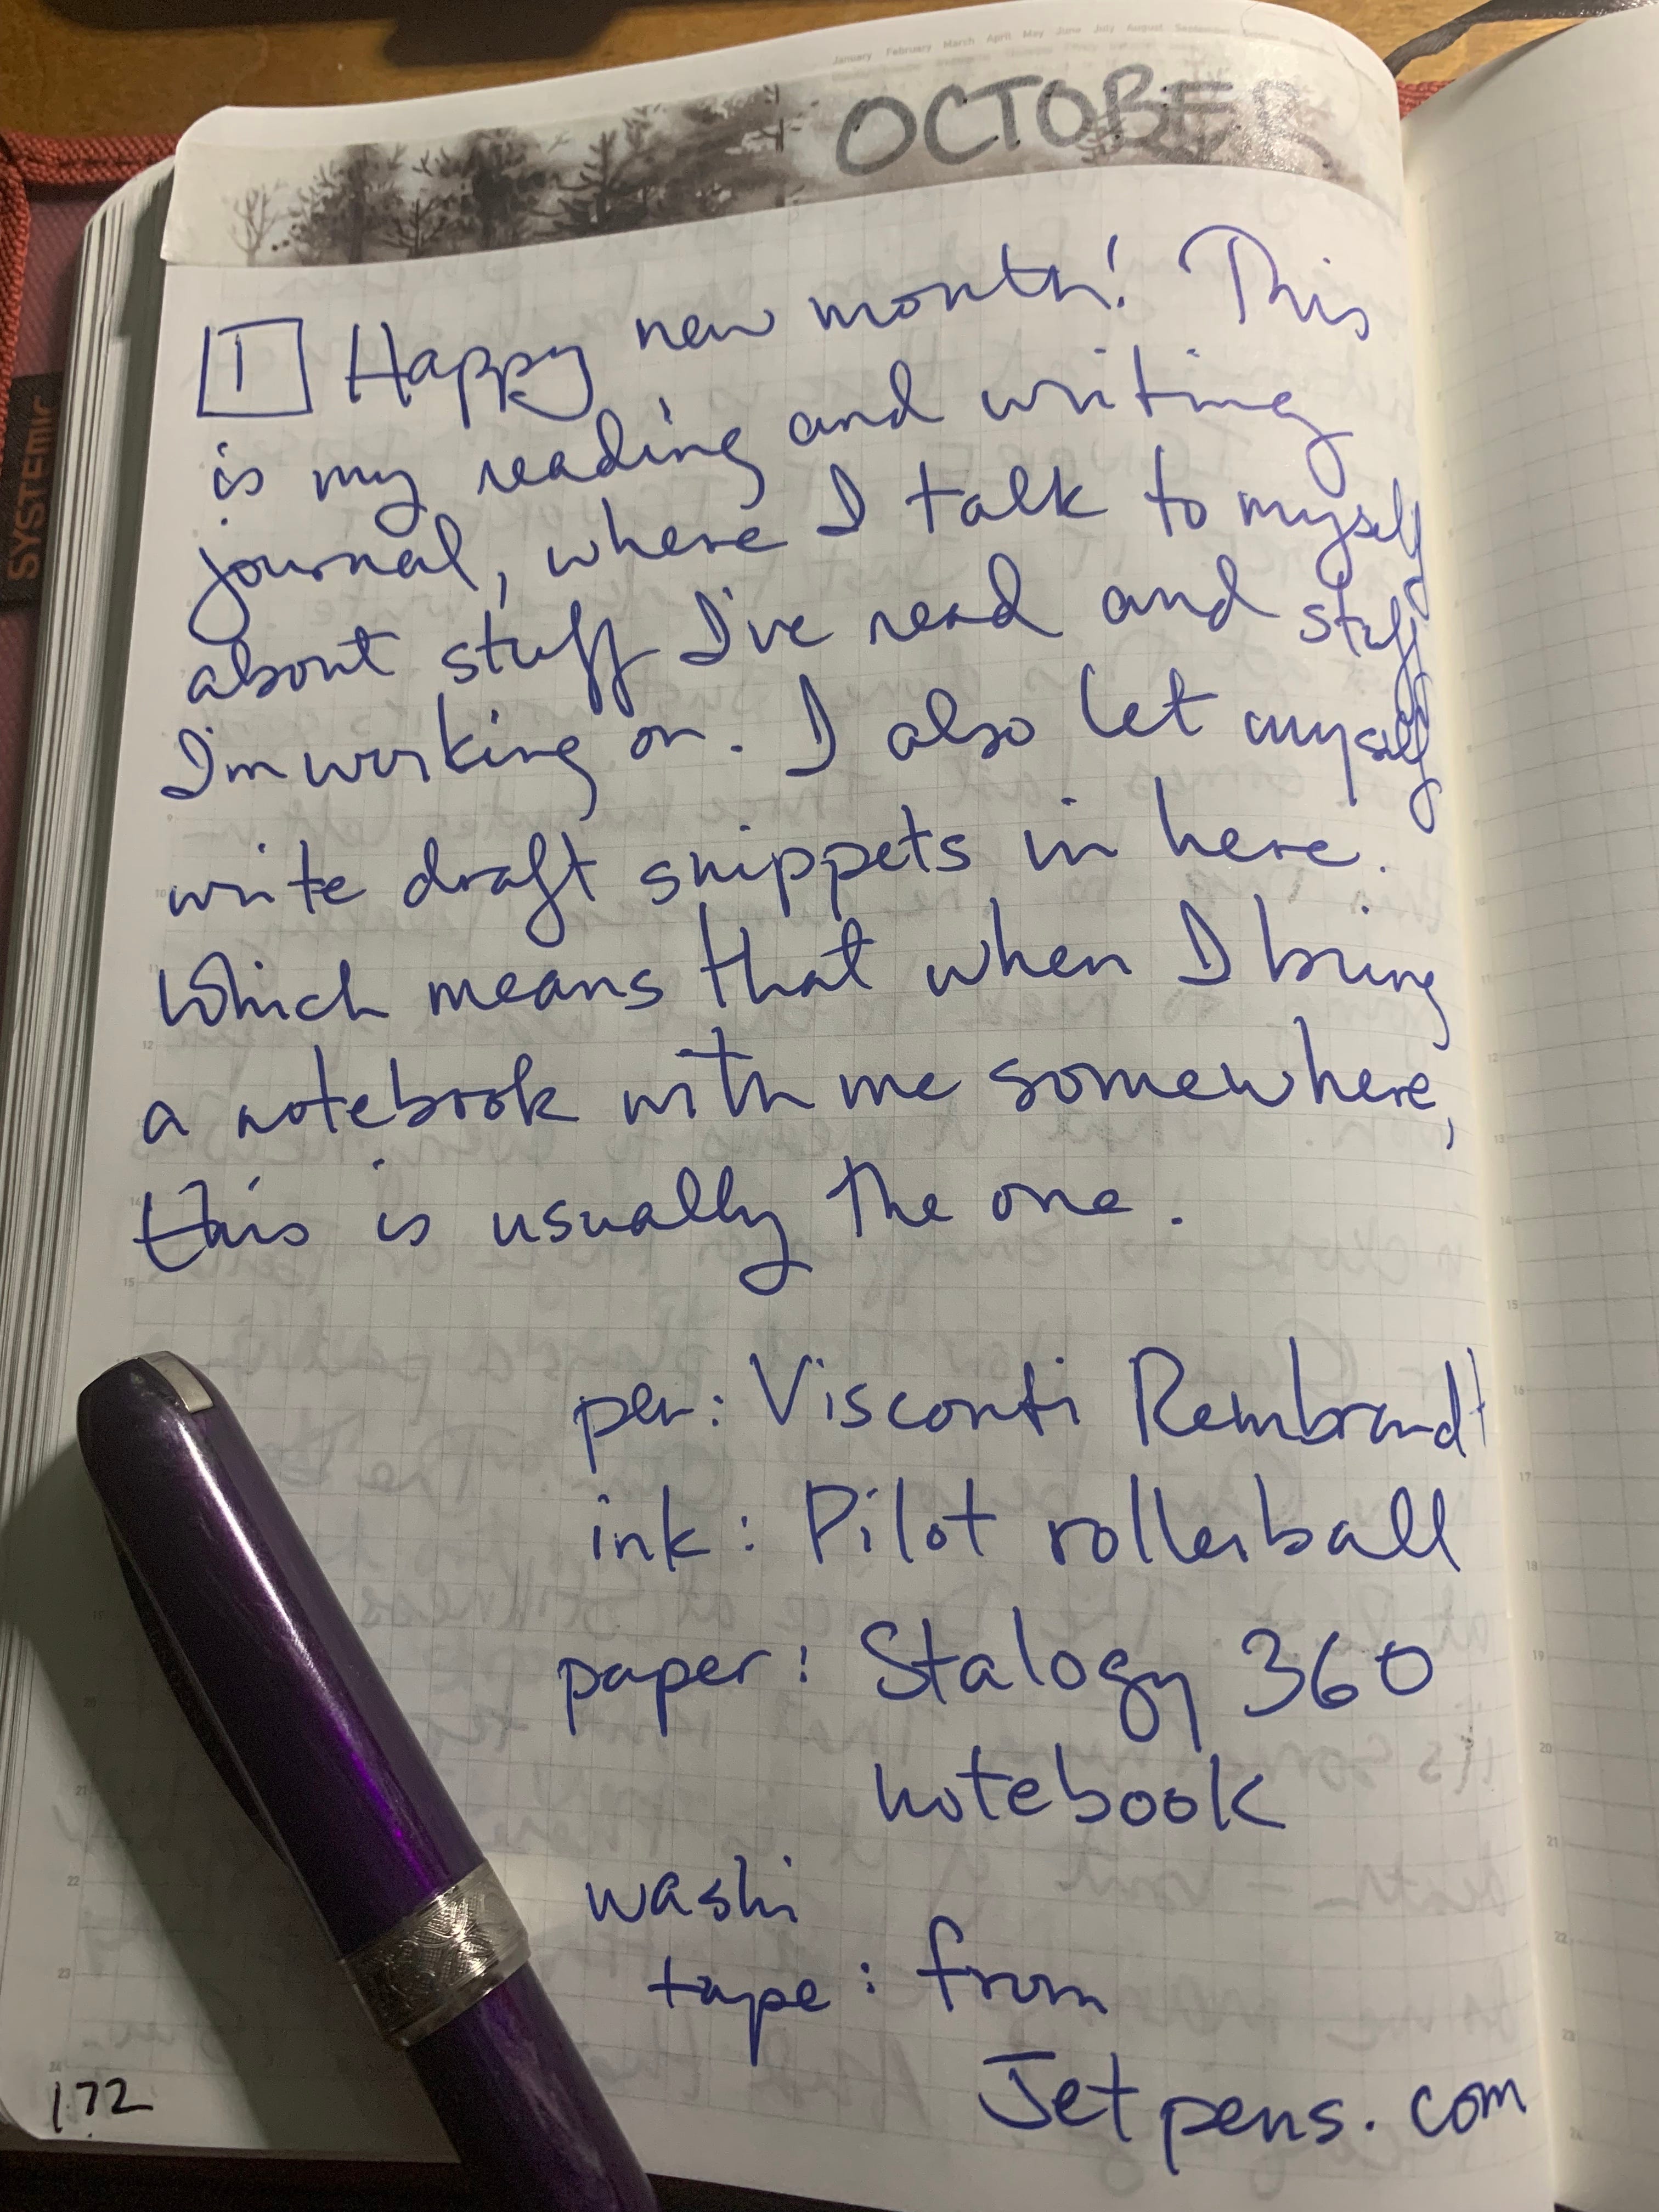 January February March April May June July August September
OCTOBER
1 Happy new month! This
is my reading and writing
journal, where I talk to myself
about stuff I've read and stuff
I'm working on. I also let myself
write draft snippets in here.
Which means that when I bring
a notebook with me somewhere,
this is usually the one.
pen: Visconti Rembrandt
ink: Pilot rollerball
paper: Stalogy 360
notebook
washi
tape: from
Jetpens.com
172
SYSTEMIC
9
10
11
12
13
14
15
20
21
22
23
24
12
13
14
15
16
17
18
19
20
21
22
23
24